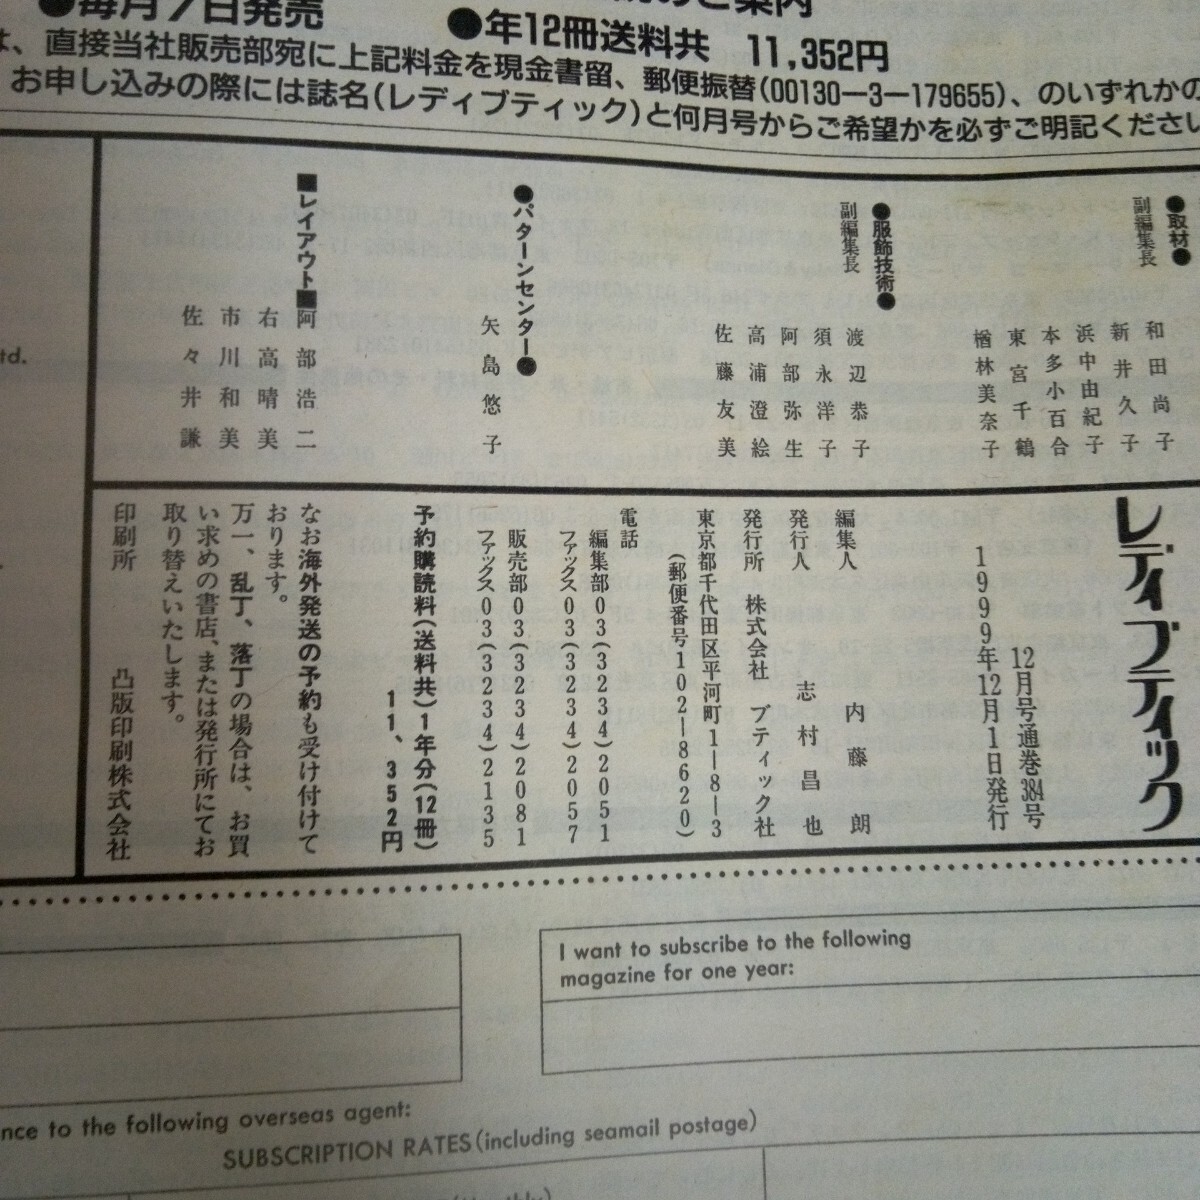 ●毎月7日発売
●年12冊送料共 11,352円
は、直接当社販売部宛に上記料金を現金書留、郵便振替(00130—3—179655)、のいずれかの
お申し込みの際には誌名(レディブティック)と何月号からご希望かを必ずご明記ください
●取材●
副編集長
和田尚子
新井久子
浜中由紀子
本多小百合
東宮千鶴
楢林美奈子
●服飾技術●
副編集長
渡辺恭子
須永洋子
阿部弥生
高浦澄絵
佐藤友美
●パターンセンター●
矢島悠子
■レイアウト■
阿部浩二
右高晴美
市川和美
佐々井謙
レディブティック
12月号通巻384号
1999年12月1日発行
編集人 内藤朗
発行人 志村昌也
発行所 株式会社 ブティック社
東京都千代田区平河町1—8—3
(郵便番号102—8620)
電話
編集部03(3234)2051
ファックス03(3234)2057
販売部03(3234)2081
ファックス03(3234)2135
予約購読料(送料共)1年分(12冊)
11、352円
なお海外発送の予約も受け付けて
おります。
万一、乱丁、落丁の場合は、お買
い求めの書店、または発行所にてお
取り替えいたします。
印刷所 凸版印刷株式会社
td.
I want to subscribe to the following
magazine for one year:
nce to the following overseas agent:
SUBSCRIPTION RATES(including seamail postage)